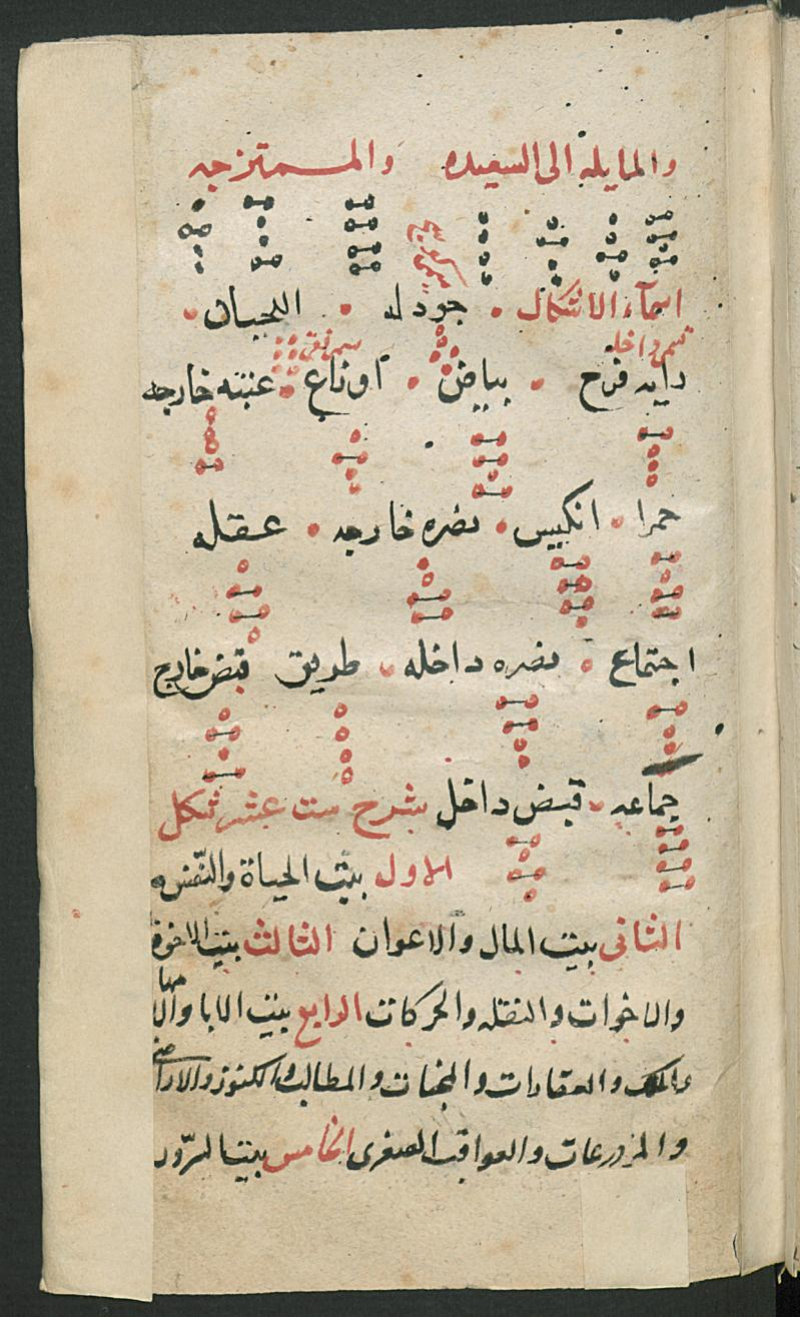 والمايله الى السعيده والممتزجه
اسمآء الاشكال • جودله • اللحيان •
دايه فرح • بياض • اوتاع • عتبته خارجه
حمرا • انكيس • نصره خارجه • عقله
اجتماع • نصره داخله • طريق قبض خارج
جماعه • قبض داخل شرح ست عشر شكل
الاول بيت الحياة والنفس
الثانى بيت المال والاعوان الثالث بيت الاخوة
والاخوات والنقله والحركات الرابع بيت الابا والامهات
والعقارات والجنات والمطالب والكنوز والاراضى
والمزروعات والعواقب الصغرى الخامس بيت السرور